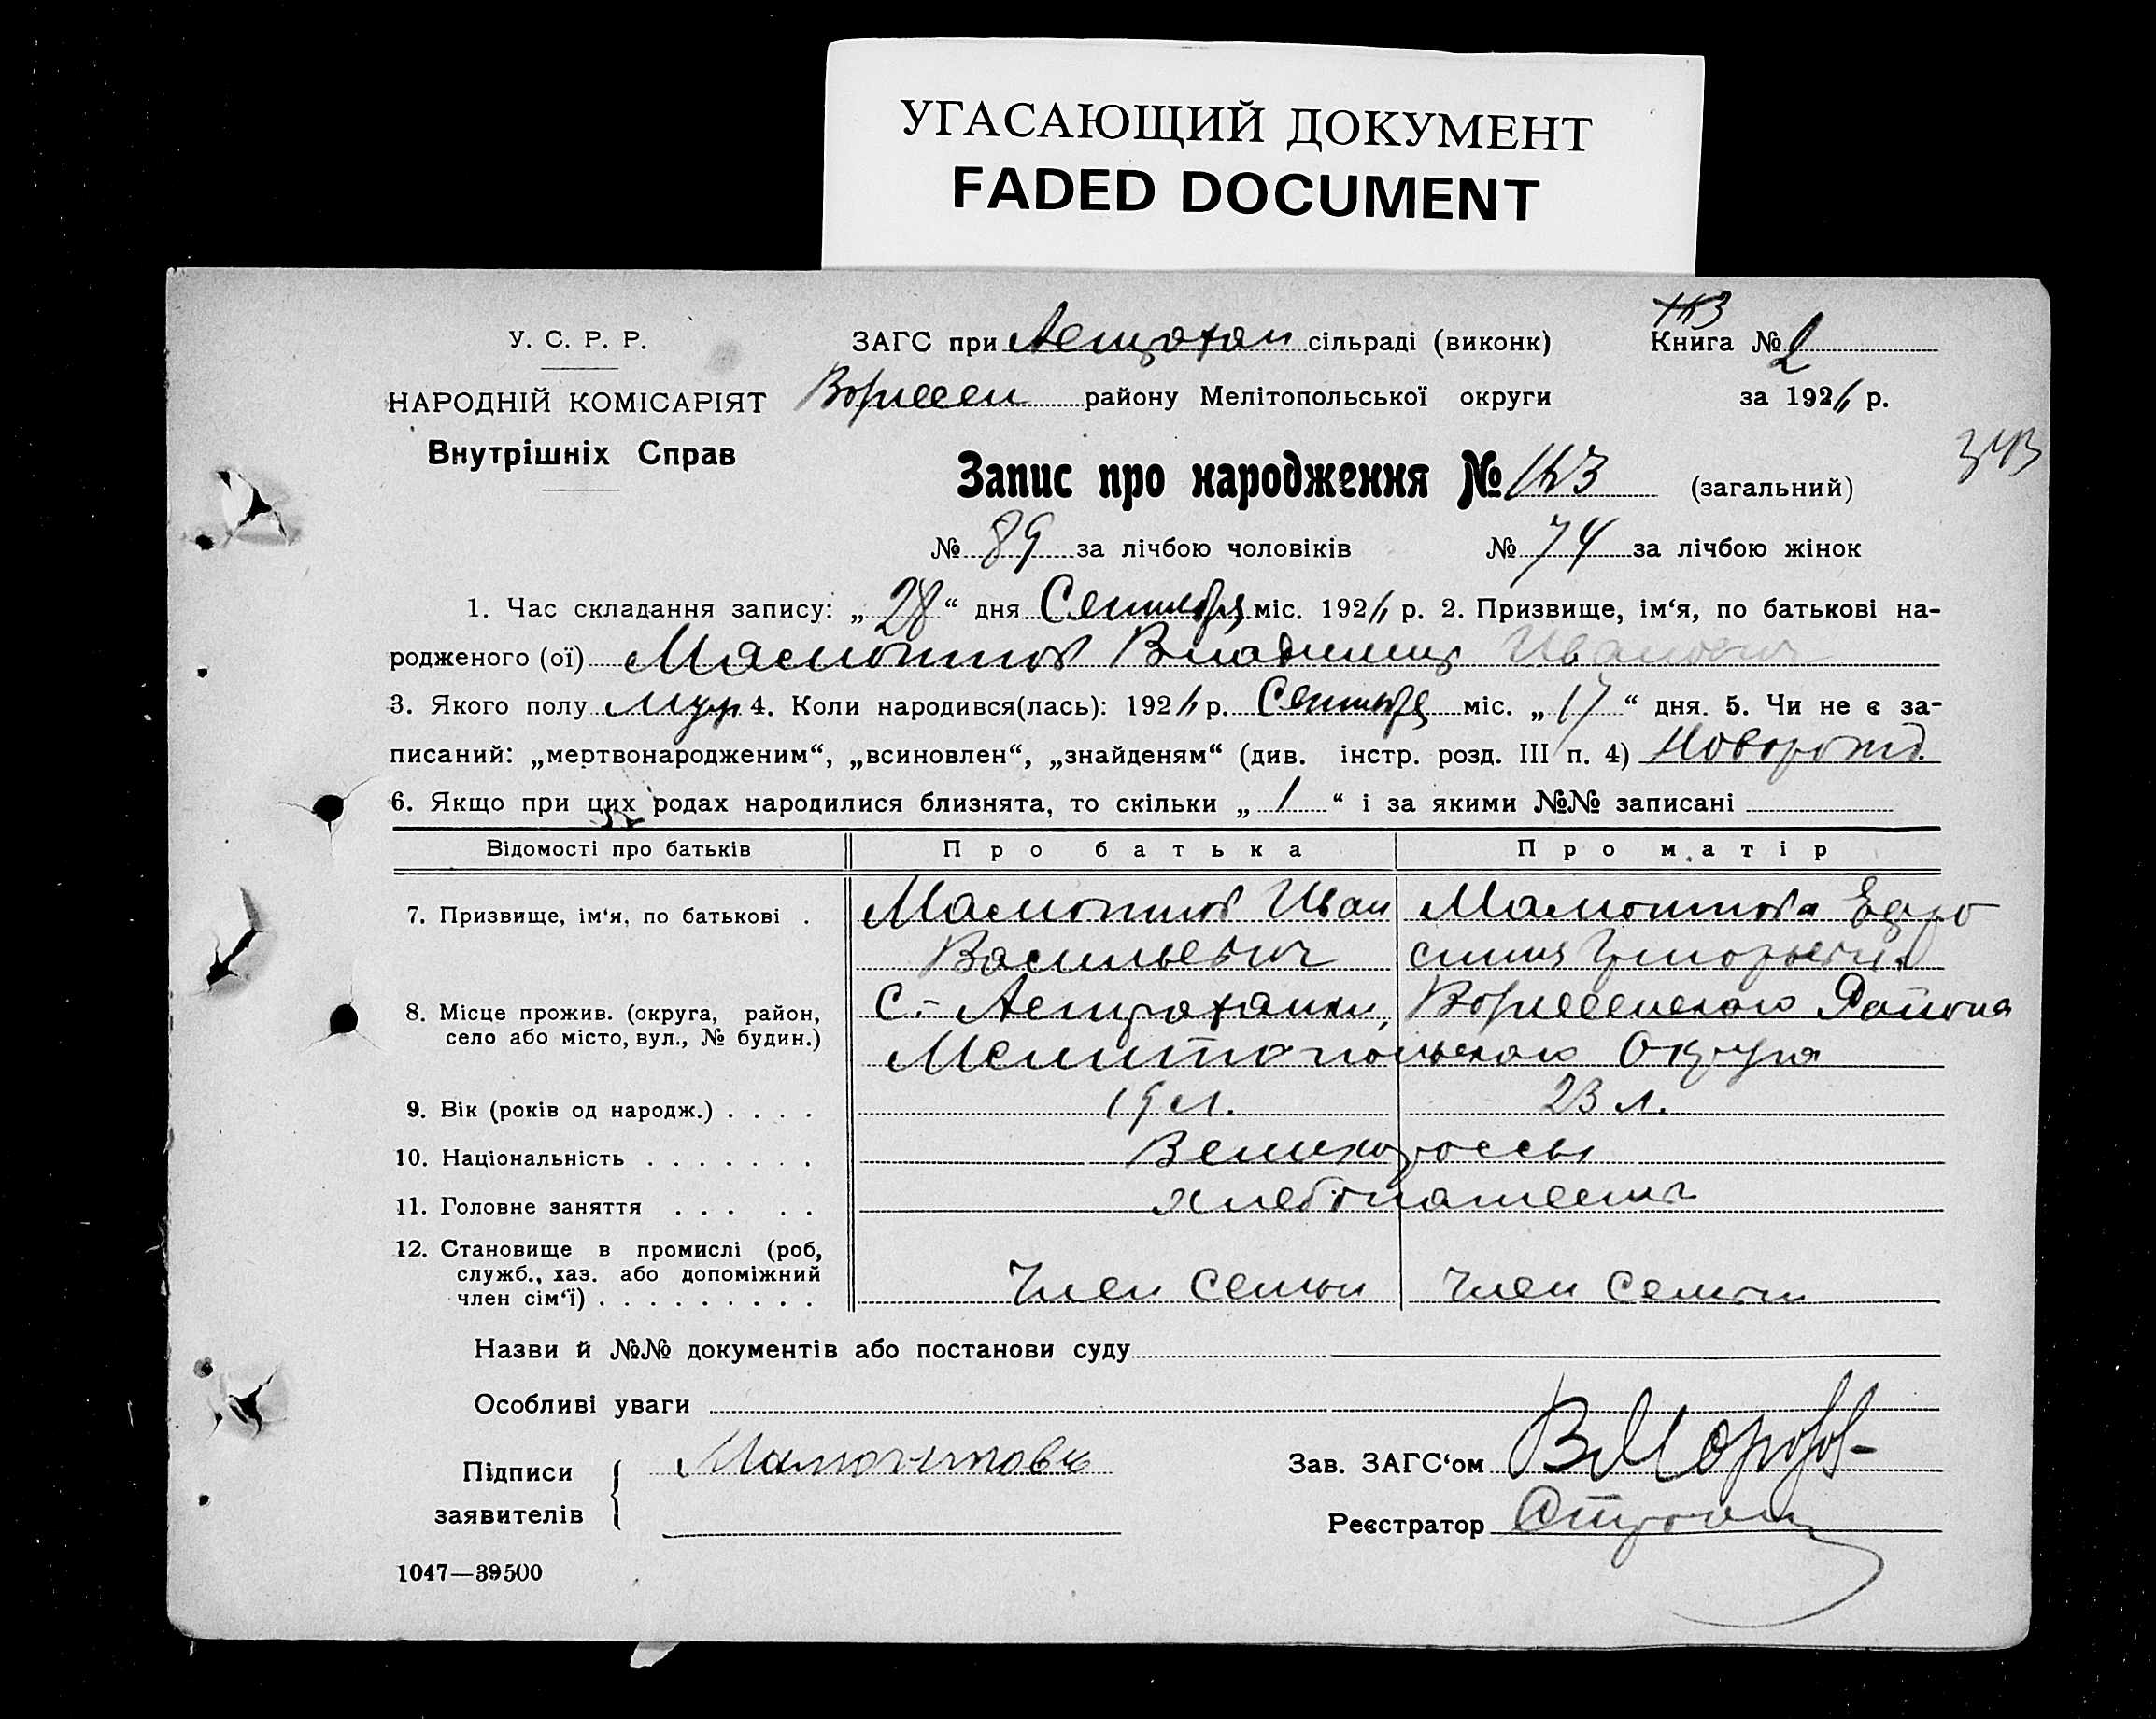 УГАСАЮЩИЙ ДОКУМЕНТ
FADED DOCUMENT
У. С. Р. Р.
НАРОДНІЙ КОМІСАРІЯТ
Внутрішніх Справ
ЗАГС при Астрахан сільраді (виконк)
Книга № 2
району Мелітопольської округи
за 192 р.
Запис про народження № 163 (загальний)
343
№ 89 за лічбою чоловіків № 74 за лічбою жінок
1. Час складання запису: „ 28 “ дня Сентября міс. 192 р. 2. Призвище, ім‘я, по батькові на-
родженого (ої) Мамонтов Владимир Иванович
3. Якого полу муж 4. Коли народився(лась): 192 р. Сентября міс. „ 17 “ дня. 5. Чи не є за-
писаний: „мертвонародженим“, „всиновлен“, „знайденям“ (див. інстр. розд. III п. 4) Новорожд.
6. Якщо при цих родах народилися близнята, то скільки „ 1 “ і за якими №№ записані
Відомості про батьків Про батька Про матір
7. Призвище, ім‘я, по батькові . Мамонтов Иван Мамонтова Ефро
Васильевич синия Григорьевна
8. Місце прожив. (округа, район, С.- Астраханки, Района
село або місто, вул., № будин.) Мелитопольского Округа
9. Вік (років од народж.) . . . . 19 л. 23 л.
10. Національність . . . . . . . Великороссы
11. Головне заняття . . . . . хлебопашест
12. Становище в промислі (роб,
служб., хаз. або допоміжний
член сім‘ї) . . . . . . . . . Член семьи Член семьи
Назви й №№ документів або постанови суду
Особливі уваги
Підписи Мамонтовъ
заявителів
Зав. ЗАГС‘ом В Морозов
Реєстратор
1047—39500